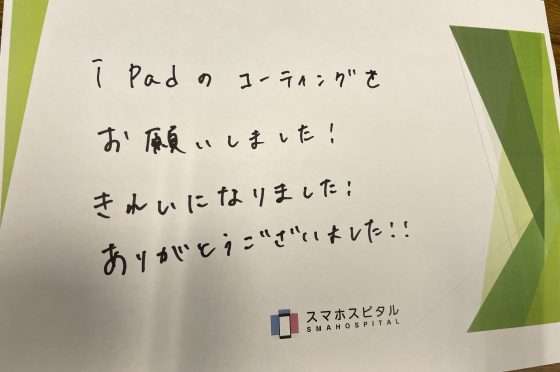 i Padのコーティングを
お願いしました!
きれいになりました!
ありがとうございました!!
スマホスピタル
SMAHOSPITAL